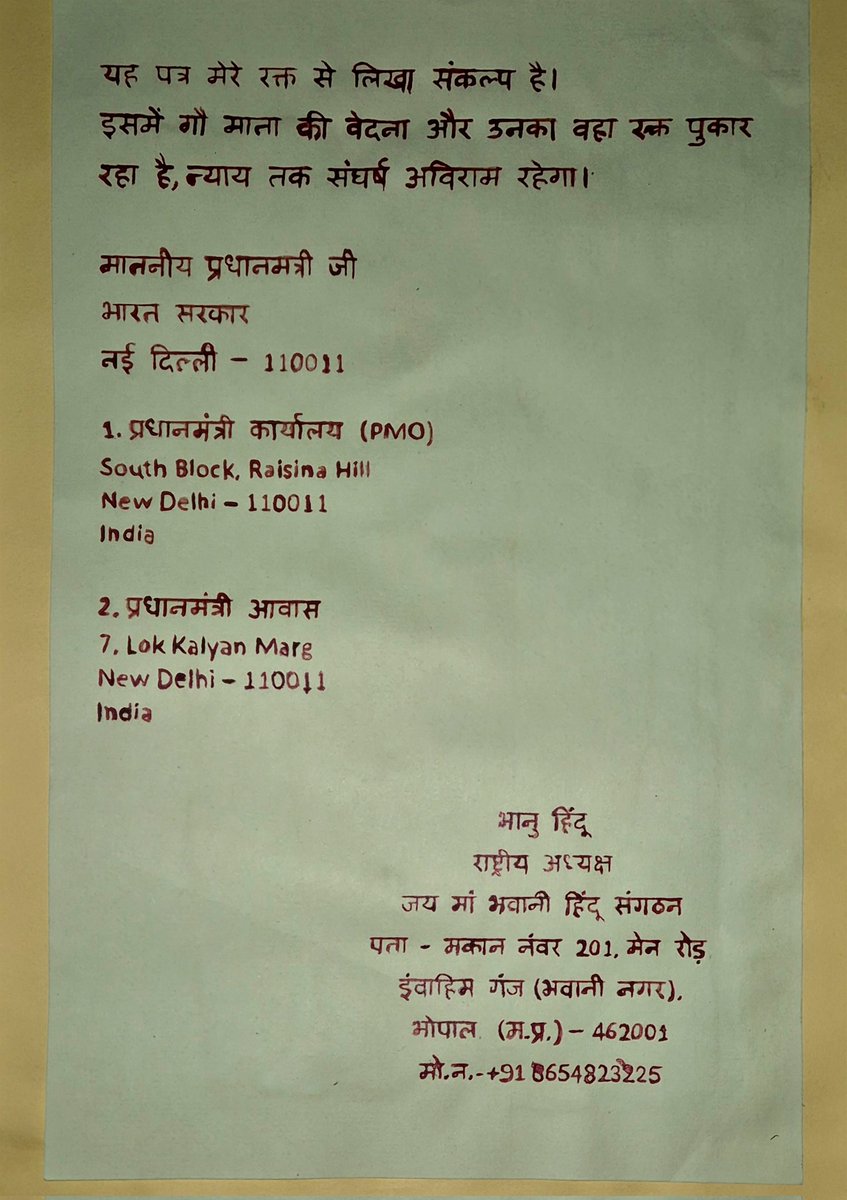 यह पत्र मेरे रक्त से लिखा संकल्प है।
इसमें गौ माता की वेदना और उनका वहा रक्त पुकार
रहा है, न्याय तक संघर्ष अविराम रहेगा।
माननीय प्रधानमत्री जी
भारत सरकार
नई दिल्ली – 110011
1. प्रधानमंत्री कार्यालय (PMO)
South Block, Raisina Hill
New Delhi – 110011
India
2. प्रधानमंत्री आवास
7, Lok Kalyan Marg
New Delhi – 110011
India
भानु हिंदू
राष्ट्रीय अध्यक्ष
जय मां भवानी हिंदू संगठन
पता - मकान नंवर 201, मेन रोड़
इंवाहिम गंज (भवानी नगर),
भोपाल (म.प्र.) – 462001
मो.न.-+91 8654823225